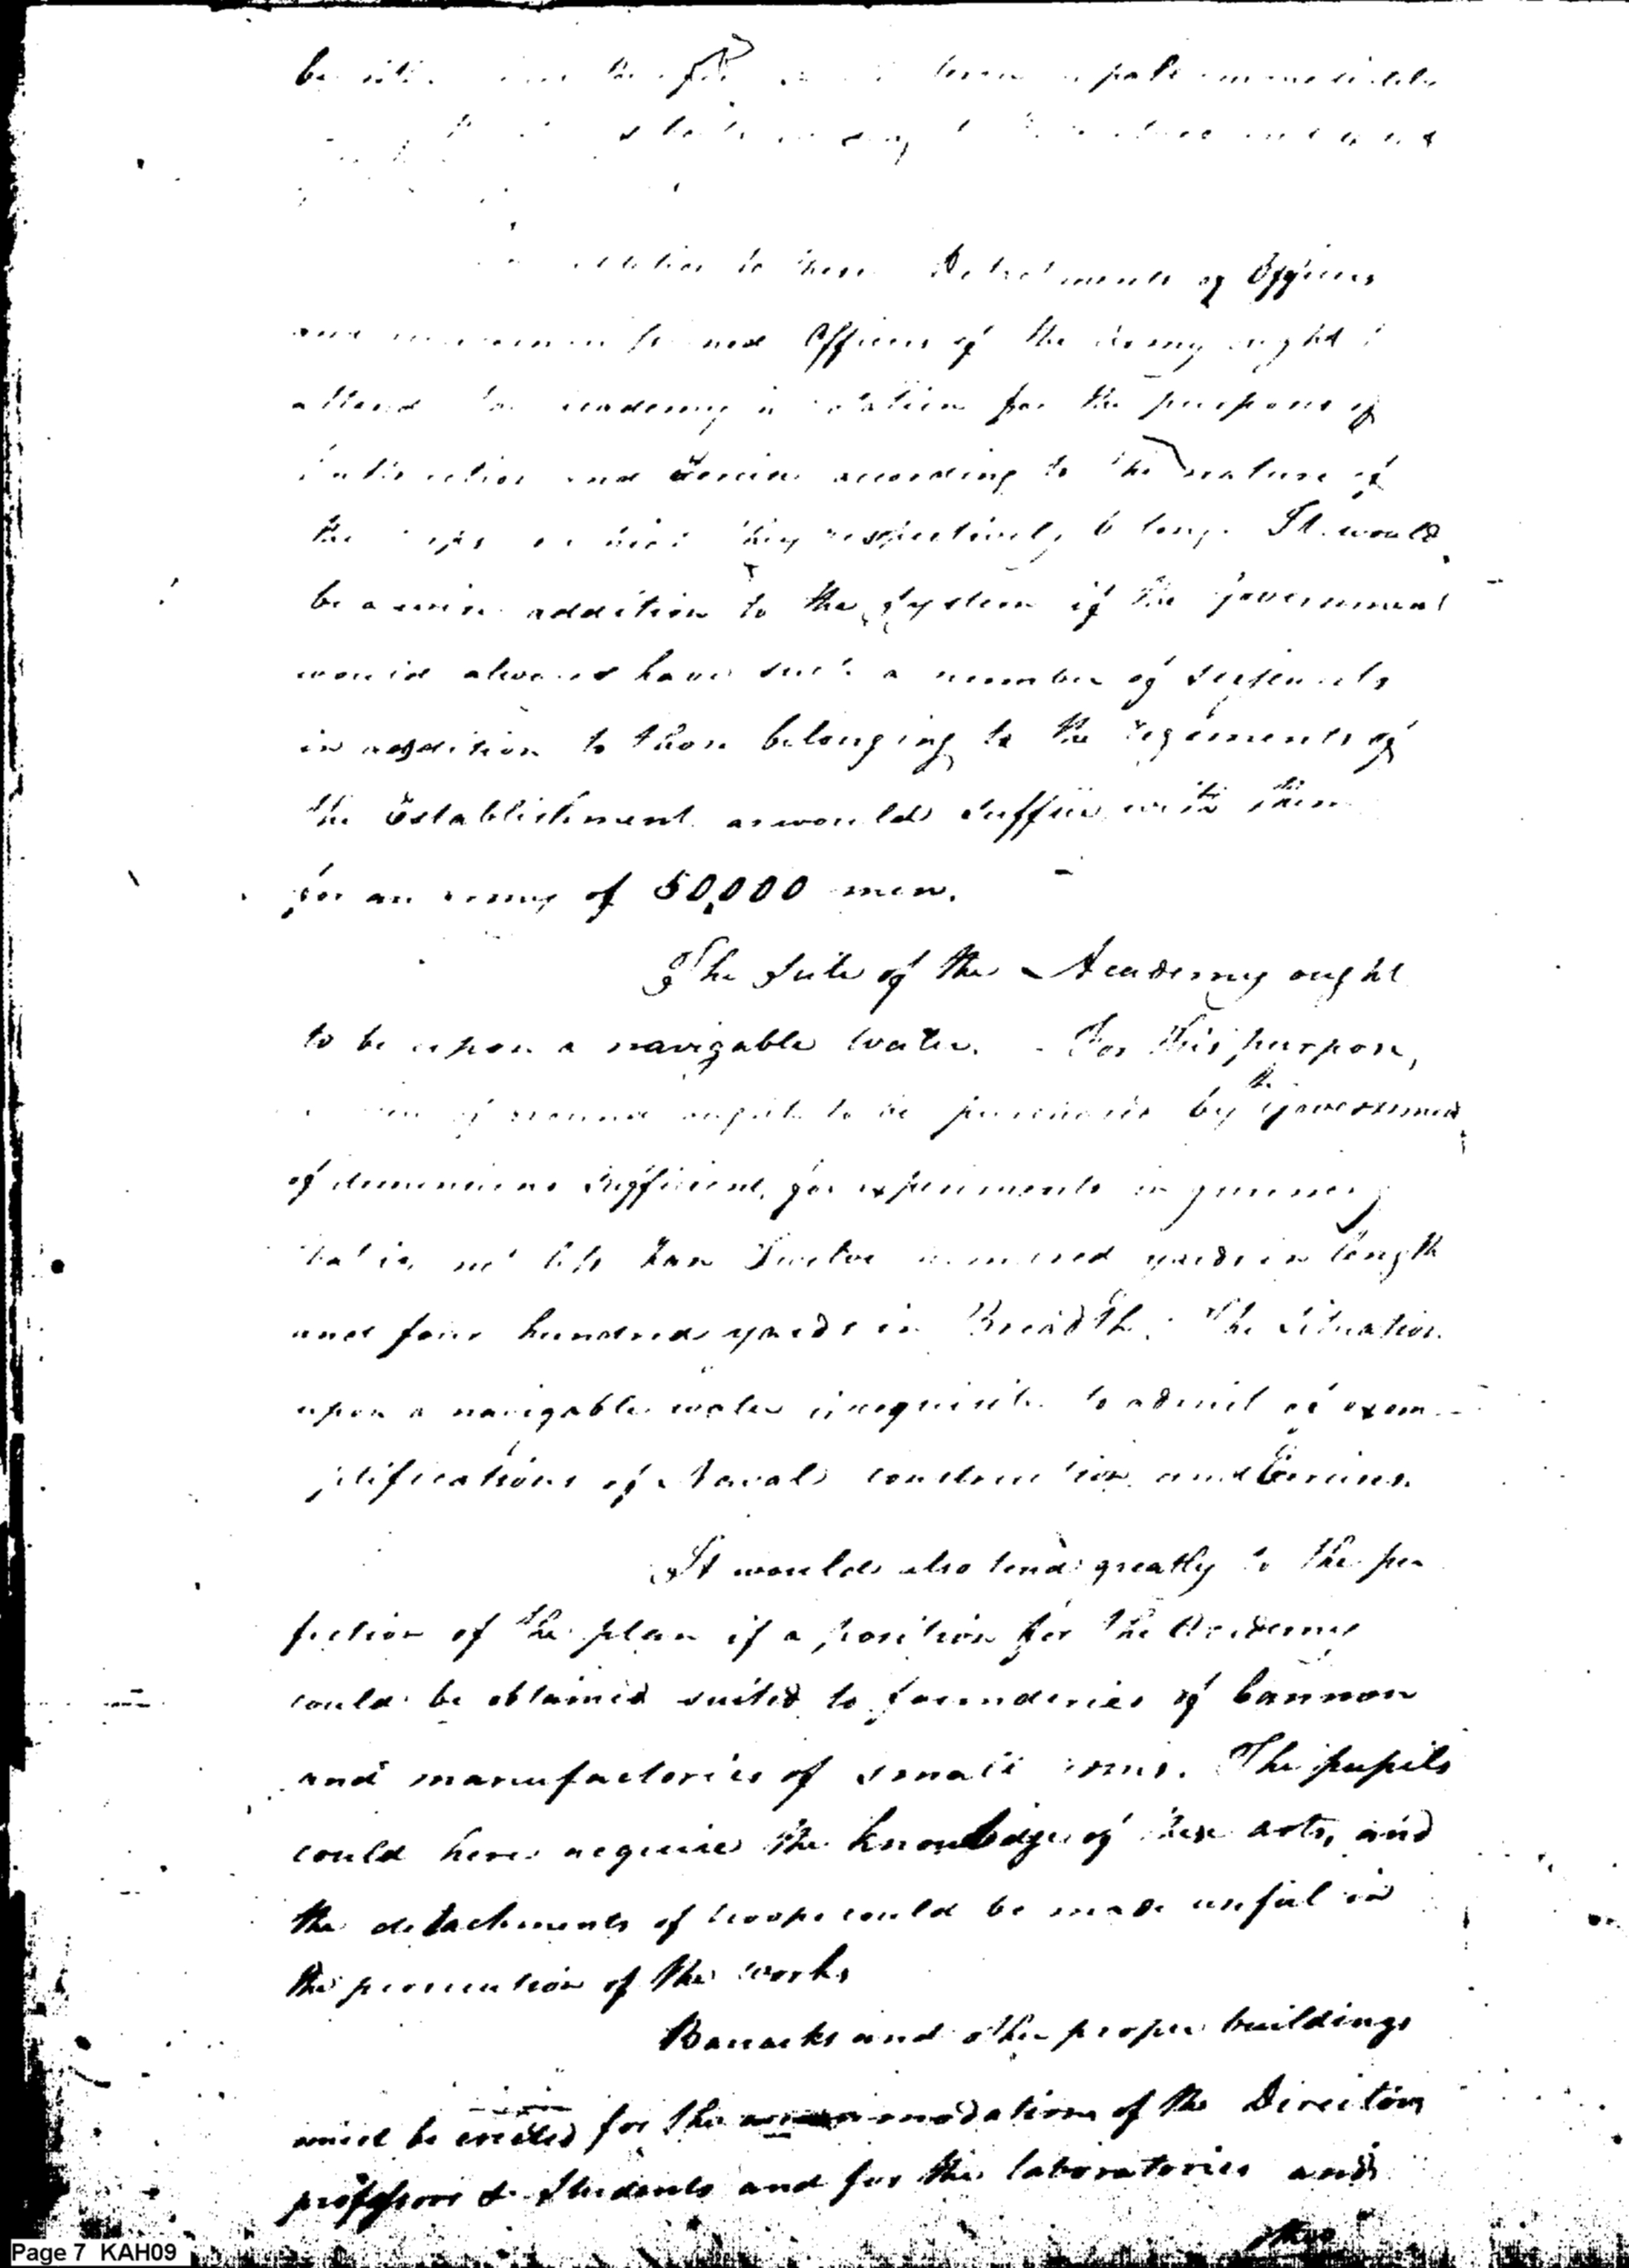 be
to these Detachments of Officers
Officers of the Army ought
attend academy in rotation for the purposes of
instruction and Exercise according to the nature of
the they respectively belong. It would
be a wise addition to the System if the government
would always have such a number of Serjeants
in addition to those belonging to the regiments of
the Establishment as would suffice with them
for an army of 50,000 men.
The Site of the Academy ought
to be upon a navigable water. - For this purpose,
of ground ought to be purchased by the Government
of dimensions sufficient, for experiments in gunnery
that is, not less than Twelve hundred yards in length
and four hundred yards in Breadth. The Situation
upon a navigable water is requisite to admit of exem-
plifications of Naval construction and Exercises.
It would also tend greatly to the per
fection of the plan if a position for the Academy
could be obtained suited to founderies of Cannon
and manufactories of small arms. The pupils
could here acquire the knowledge of these arts, and
the detachments of troops could be made useful in
the prosecution of the works
Barracks and other proper buildings
must be erected for the accommodation of the Directors
professors & Students and for the laboratories and
Page 7 KAH09